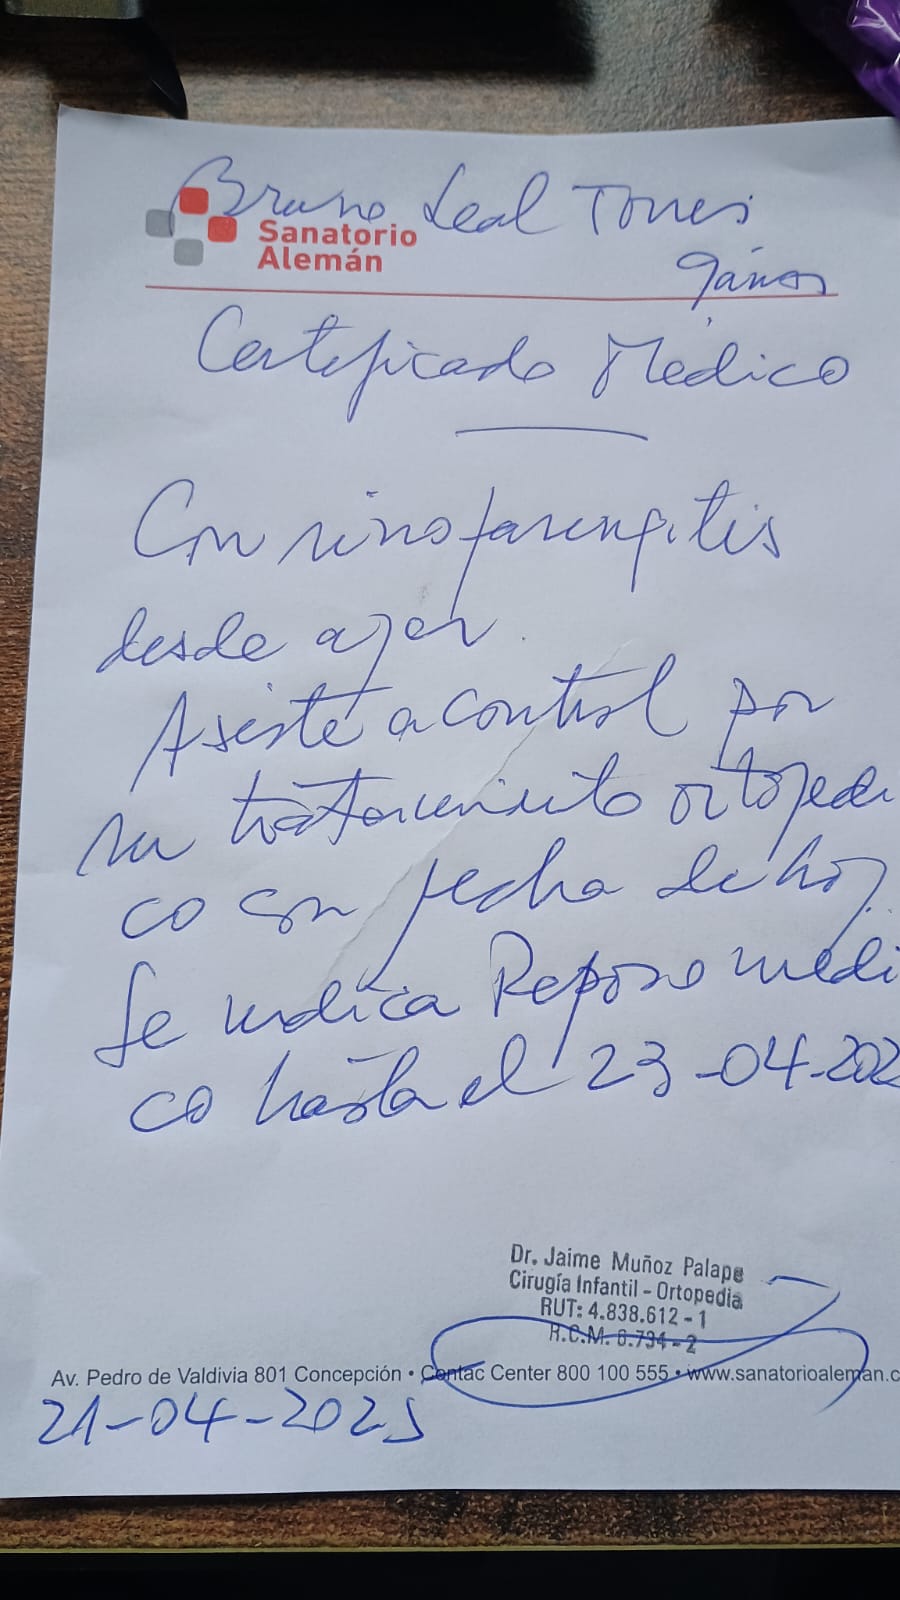 Bruno Leal Torres
Sanatorio
Alemán
9 años
Certificado Médico
Con rinofaringitis
desde ayer.
Asiste a control por
su tratamiento ortopedi
co con fecha de hoy.
Se indica Reposo medi
co hasta el 23-04-202
Dr. Jaime Muñoz Palape
Cirugía Infantil - Ortopedia
RUT: 4.838.612-1
R.C.M. 6.734-2
Av. Pedro de Valdivia 801 Concepción • Contac Center 800 100 555 • www.sanatorioaleman.c
21-04-2025